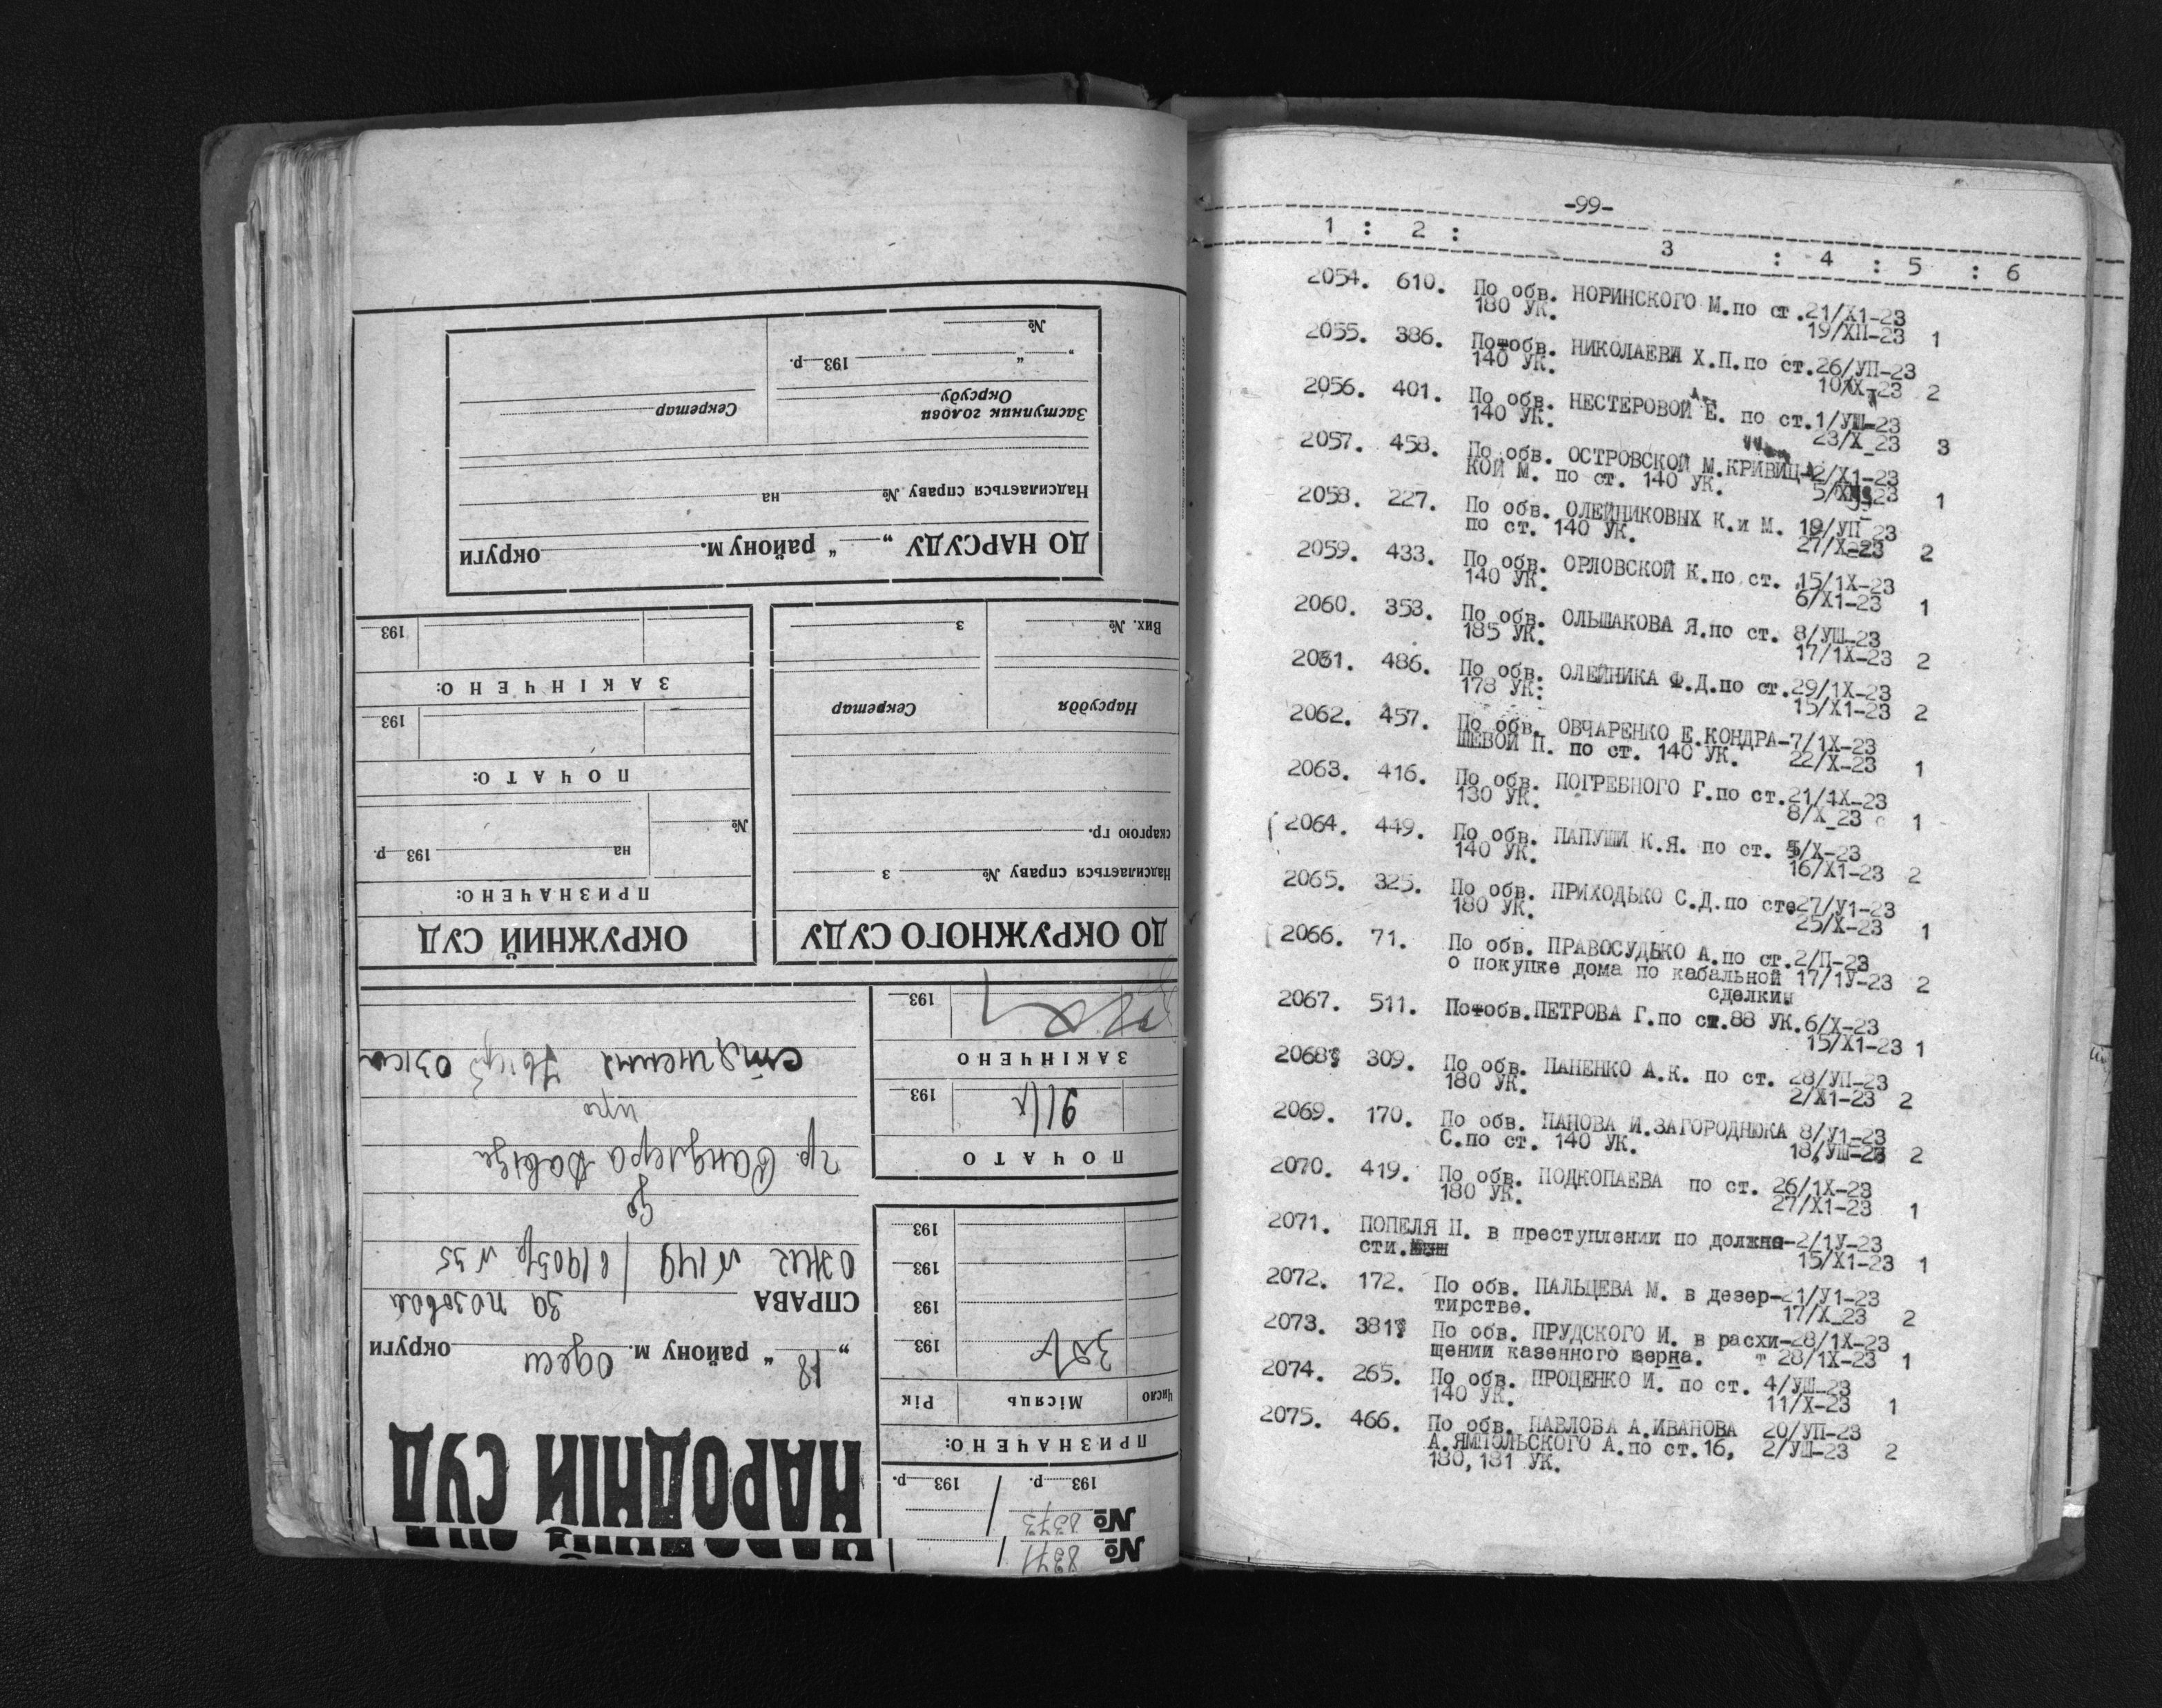 № 8371 /
№ 8373 /
193 р. 193 р.
ПРИЗНАЧЕНО:
Число Місяць Рік
193
193
193
193
ПОЧАТО
193
ЗАКІНЧЕНО
193
НАРОДНІЙ СУД
НАРОДНІЙ СУД
„18“ району м. Одеси округи
СПРАВА за позовом
до
гр. Давіда
про
ДО ОКРУЖНОГО СУДУ
Надсилається справу № з
скаргою гр.
Нарсуддя Секретар
Вих. № з
ОКРУЖНИЙ СУД
ПРИЗНАЧЕНО:
№ на 193 р.
ПОЧАТО:
193
ЗАКІНЧЕНО:
193
ДО НАРСУДУ „ “ району м. округи
Надсилається справу № на
Заступник голови
Окрсуду
Секретар
„ “ 193 р.
№
-99-
1 : 2 : 3 : 4 : 5 : 6
2054. 610. По обв. НОРИНСКОГО М.по ст.21/Х1-23
180 УК. 19/ХП-23 1
2055. 386. Потобв. НИКОЛАЕВА Х.П.по ст.26/УП-23
140 УК. 10/Х-23 2
2056. 401. По обв. НЕСТЕРОВОЙ Е. по ст.1/УШ-23
140 УК. 23/Х_23 3
2057. 458. По обв. ОСТРОВСКОЙ М.КРИВИЦ-2/Х1-23
КОЙ М. по ст. 140 УК. 1
2058. 227. По обв. ОЛЕЙНИКОВЫХ К.и М. 19/УП_23
по ст. 140 УК. 27/Х-23 2
2059. 433. По обв. ОРЛОВСКОЙ К.по ст. 15/1Х-23
140 УК. 6/Х1-23 1
2060. 353. По обв. ОЛЬШАКОВА Я.по ст. 8/УШ-23
185 УК. 17/1Х-23 2
2061. 486. По обв. ОЛЕЙНИКА Ф.Д.по ст.29/1Х-23
178 УК: 15/Х1-23 2
2062. 457. По обв. ОВЧАРЕНКО Е.КОНДРА-7/1Х-23
ШЕВОЙ П. по ст. 140 УК. 22/Х-23 1
2063. 416. По обв. ПОГРЕБНОГО Г.по ст.21/1Х-23
130 УК. 8/Х_23 1
2064. 449. По обв. ПАПУШИ К.Я. по ст. 5/Х-23
140 УК. 16/Х1-23 2
2065. 325. По обв. ПРИХОДЬКО С.Д.по сте27/У1-23
180 УК. 25/Х-23 1
2066. 71. По обв. ПРАВОСУДЬКО А.по ст.2/П-23
о покупке дома по кабальной 17/1У-23 2
сделки
2067. 511. Потобв.ПЕТРОВА Г.по ст.88 УК.6/Х-23
15/Х1-23 1
2068. 309. По обв. ПАНЕНКО А.К. по ст. 28/УП-23
180 УК. 2/Х1-23 2
2069. 170. По обв. ПАНОВА И.ЗАГОРОДНЮКА 8/У1-23
С.по ст. 140 УК. 18/УШ-23 2
2070. 419. По обв. ПОДКОПАЕВА по ст. 26/1Х-23
180 УК. 27/Х1-23 1
2071. ПОПЕЛЯ П. в преступлении по должно-2/1У-23
сти. 15/Х1-23 1
2072. 172. По обв. ПАЛЬЦЕВА М. в дезер-21/У1-23
тирстве. 17/Х_23 2
2073. 381 По обв. ПРУДСКОГО И. в расхи-28/1Х-23
щении казенного зерна. т 28/1Х-23 1
2074. 265. По обв. ПРОЦЕНКО И. по ст. 4/УШ_23
140 УК. 11/Х-23 1
2075. 466. По обв. ПАВЛОВА А.ИВАНОВА 20/УП-23
А.ЯМПОЛЬСКОГО А.по ст.16, 2/УШ-23 2
180,181 УК.